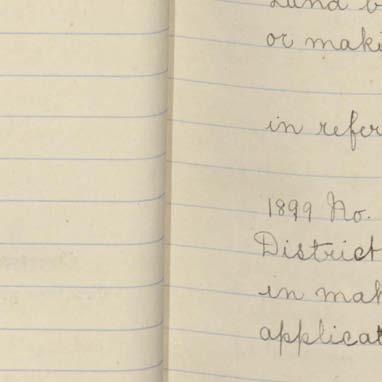 Land b
or maki
in refer
1899 No.
District
in mak
applicat